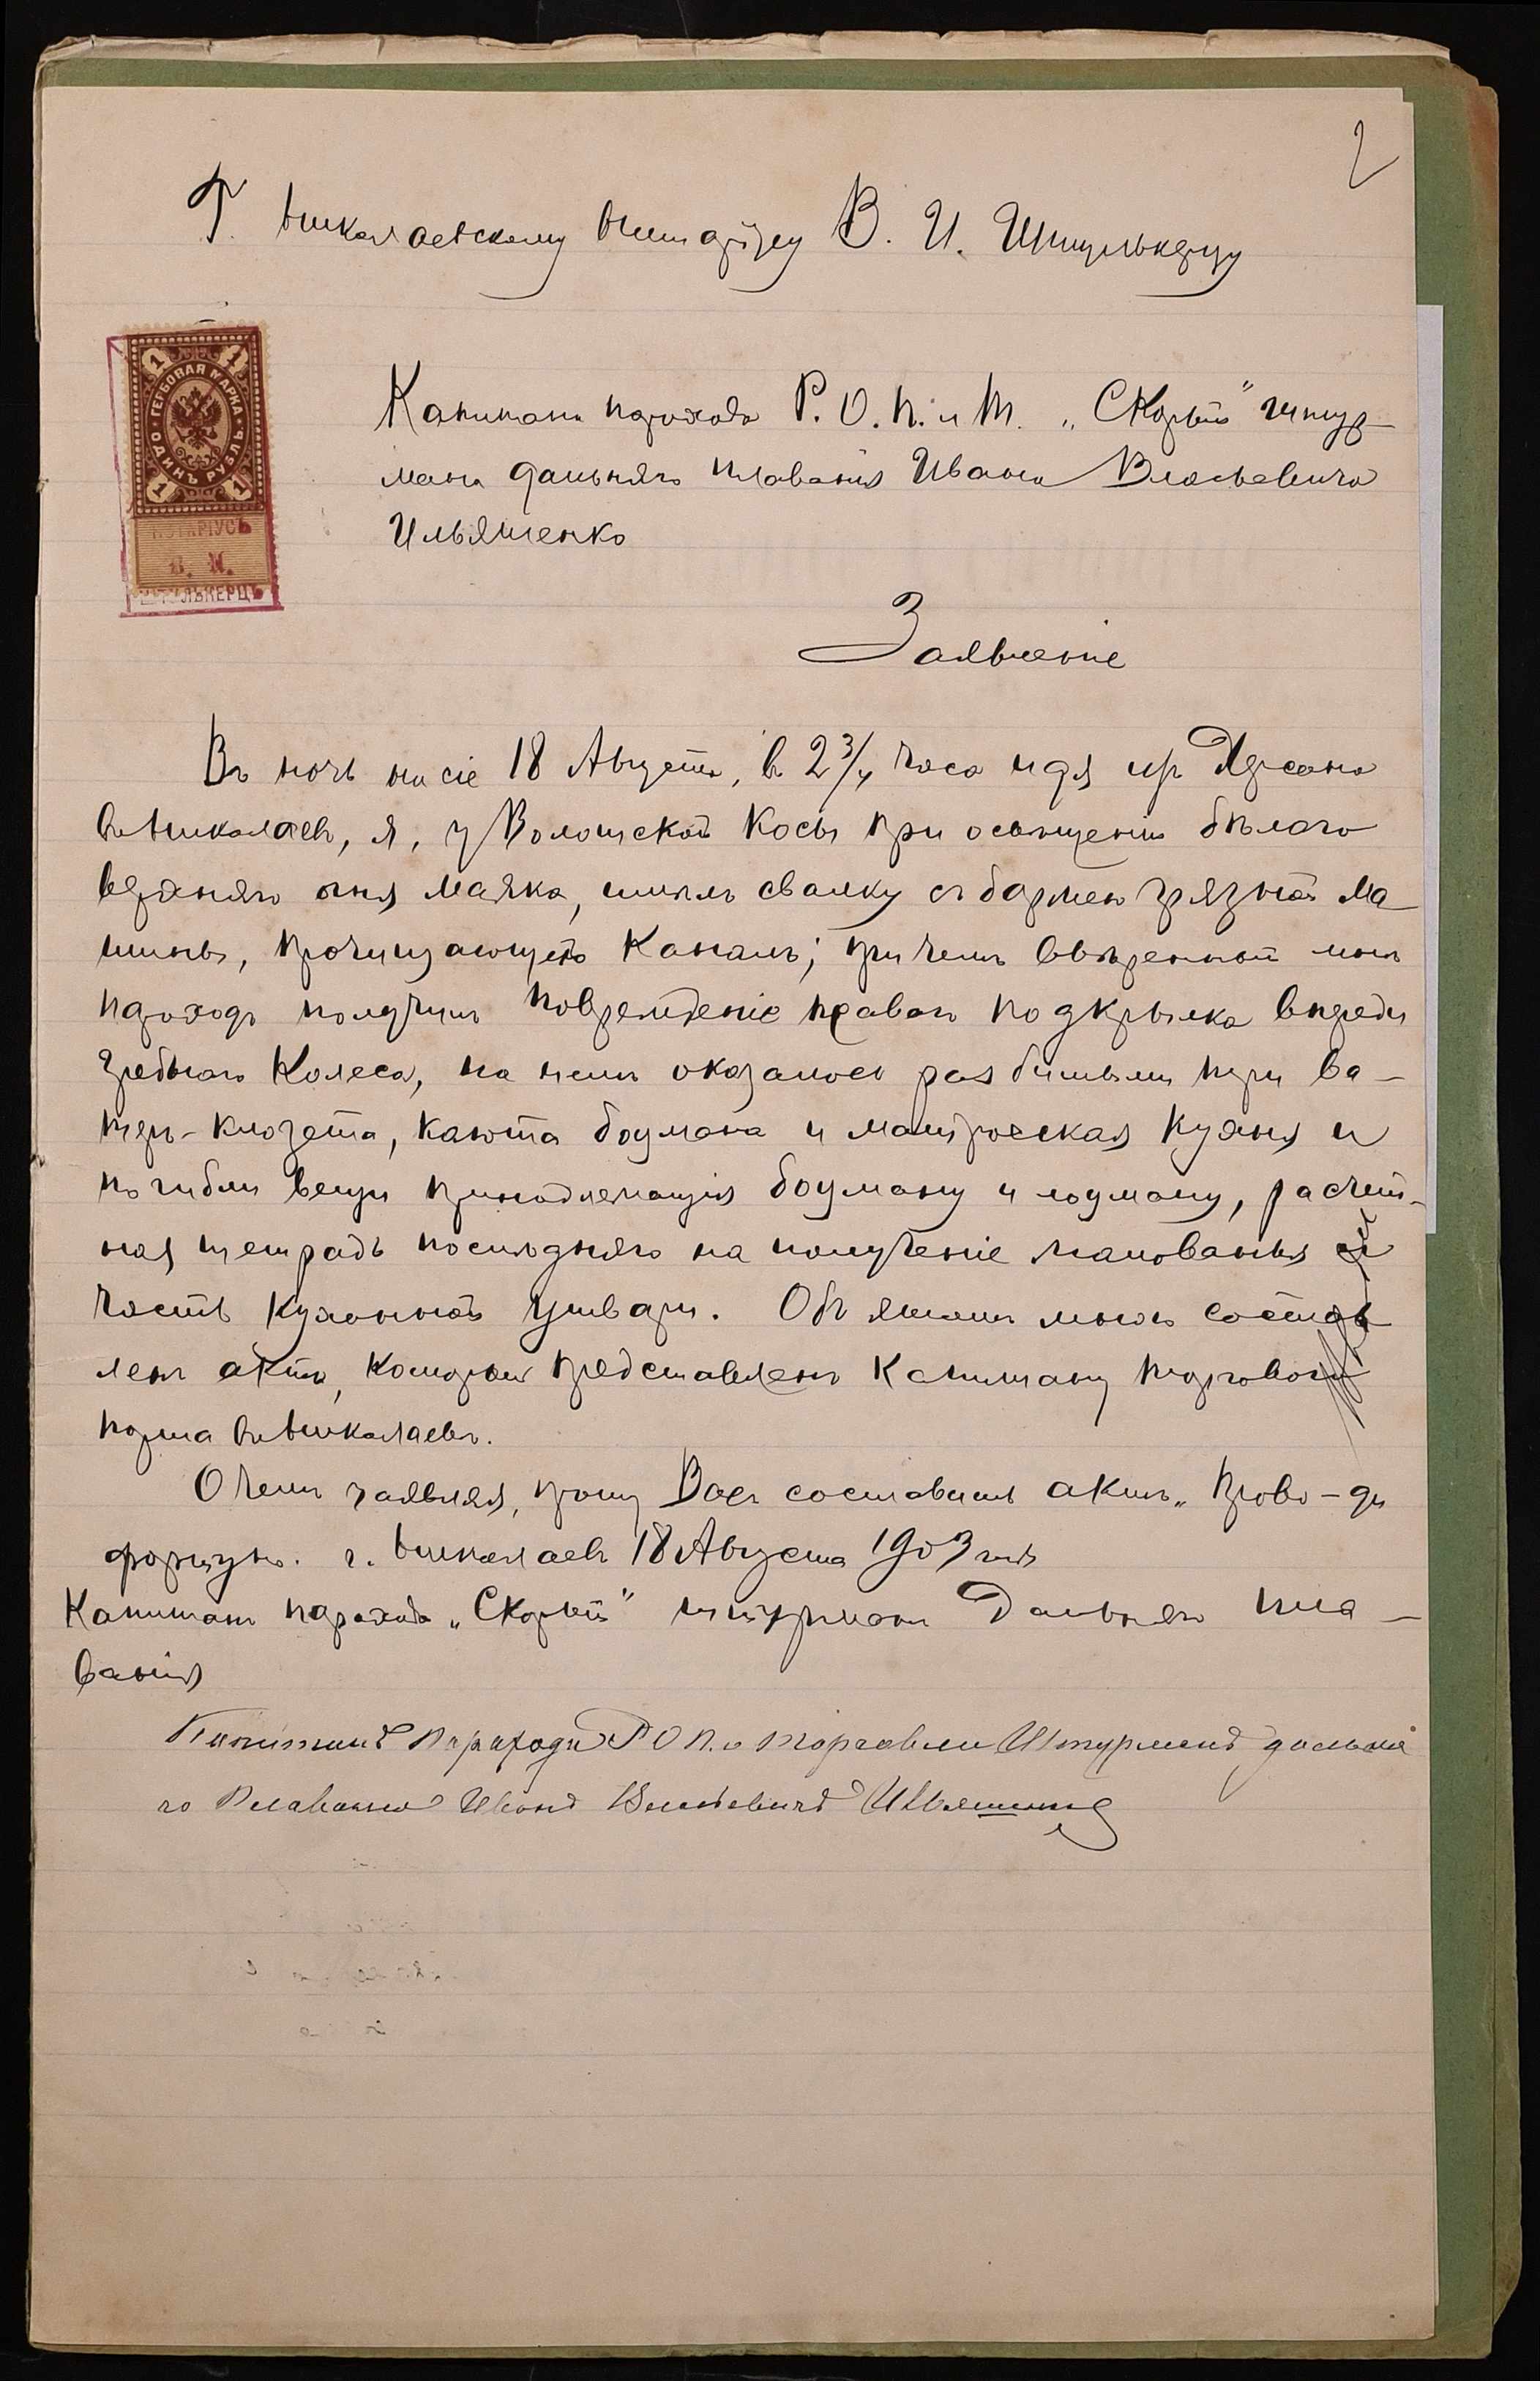 2
Г. Николаевскому Нотаріусу В. И. Штулькерцу
ГЕРБОВАЯ МАРКА
ОДИНЪ РУБЛЬ
1 1 1 1
НОТАРІУСЪ
В. И.
ШТУЛЬКЕРЦЪ
Капитана парохода Р. О. П. и Т. „Скорый" штур-
мана дальняго плаванія Ивана Власьевича
Ильяшенко
Заявленіе
Въ ночь на сіе 18 Августа, в 2 3/4 часа идя изъ Херсона
въ Николаевъ, я, у Волошской Косы при освѣщеніи бѣлаго
верхняго огня маяка, имѣлъ свалку съ баржею грязной ма-
шины, прочищающей Каналъ; при чемъ ввѣренный мнѣ
пароходъ получилъ поврежденіе праваго подкрылка впереди
гребного Колеса, на немъ оказалось разбитыми три ва-
теръ-клозета, каюта боцмана и матросская Кухня и
погибли вещи принадлежащія боцману и лоцману, расчет-
ная тетрадь послѣдняго на полученіе жалованья и
часть Кухонной утвари. Объ этомъ мною состав
ленъ актъ, который представленъ Капитану торговаго
порта въ Николаевѣ.
О чемъ заявляя, прошу Васъ составить актъ „Прово-ди
фортуно. г. Николаевъ 18 Августа 1903 года
Капитанъ парохода „Скорый" штурманъ Дальняго пла-
ванія
Капитанъ Парахода Р О П. и Торговли Штурманъ дальня
го Плаванія Иванъ Власьевичъ Ильяшенко